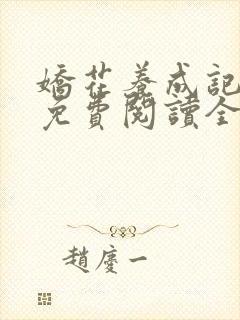 嬌花養成記
免費閱讀全
趙慶一